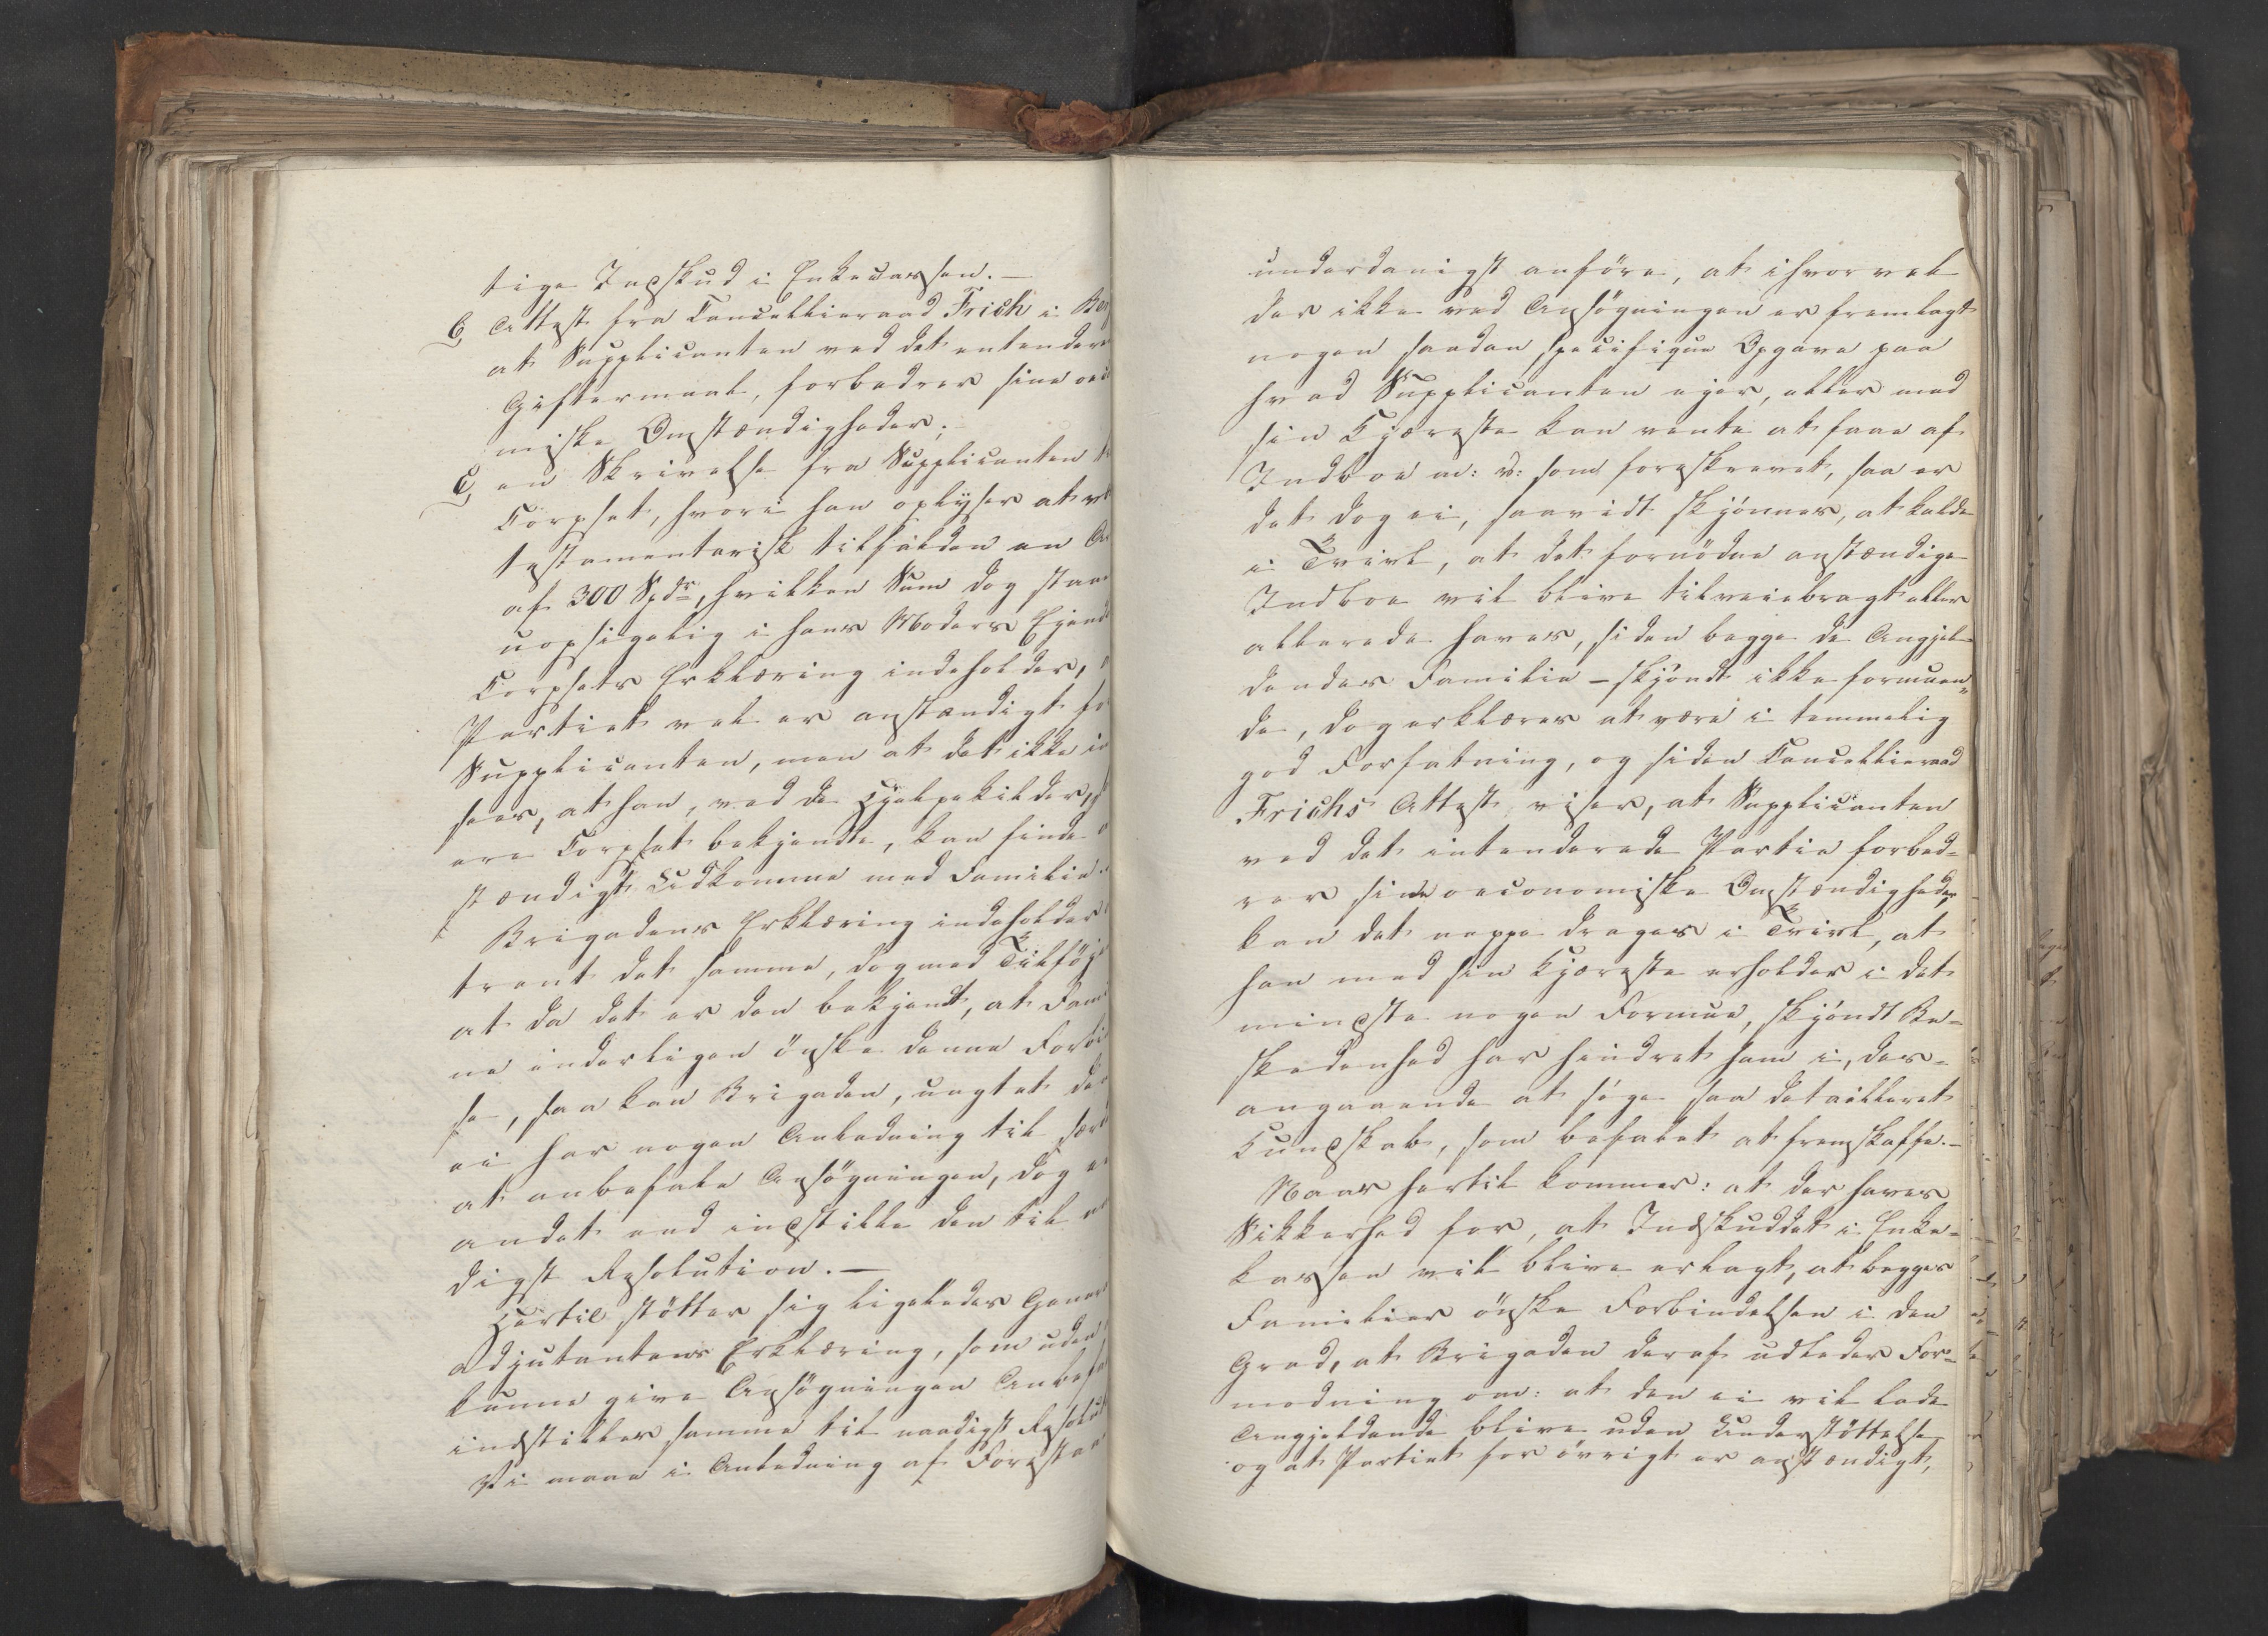 tige Indskud i Enkecassen. —
b, Attest fra Cancellieraad Frich i Ber
at Supplicanten ved det intendere
Giftermaal, forbedrer sine oeco
miske Omstændigheder;
c, en Skrivelse fra Supplicanten
Corpset, hvori han oplyser at
testamentarisk tilfalden en
af 300 Spdr, hvilken Sum dog staae
uopsigelig i hans Moders Eiend
Corpsets Erklæring indeholder,
Partiet vel er anstændigt fo
Supplicanten, men at det ikke
sees, at han, ved de Hjelpekilder,
ere Corpset bekjendte, kan finde
stændigt Udkomme med Familie.
Brigadens Erklæring indeholder
trent det samme, dog med Tilföje
at da det er den bekjendt, at Fami
ne inderligen önske denne Forbi
se, saa kan Brigaden, uagtet den
ei har nogen Anledning til
at anbefale Ansögningen, dog
andet end indstille den til
digst Resolution. —
Hertil stötter sig ligeledes General
adjutantens Erklæring, som uden
kunne give Ansögningen Anbefa
indstiller samme til naadigst Resolut
Vi maae i Anledning af Foresta
underdanigst anföre, at ihvorvel
der ikke ved Ansögningen er fremlagt
nogen saadan specifique Opgave paa
hvad Supplicanten ejer, eller med
sin Kjæreste kan vente at faae af
Indboe m: v: som foreskrevet, saa er
det dog ei, saavidt skjönnes, at kalde
i Tvivl, at det fornödne anstændige
Indboe vil blive tilveiebragt eller
allerede haves, siden begge de Angjel-
dendes Familie – skjöndt ikke formuen-
de, dog erklæres at være i temmelig
god Forfatning, og siden Cancellieraad
Frichs Attest viser, at Supplicanten
ved det intenderede Partie forbed-
rer sine oeconomiske Omstændigheder,
kan det neppe drages i Tvivl, at
han med sin Kjæreste erholder i det
mindste nogen Formue, skjöndt Be-
skedenhed har hindret ham i, des-
angaaende at söge saa detailleret
Kundskab, som befalet at fremskaffe. –
Naar hertil kommer: at der haves
Sikkerhed for, at Indskuddet i Enke-
kassen vil blive erlagt, at begges
Familier önske Forbindelsen i den
Grad, at Brigaden deraf udleder For-
modning om: at den ei vil lade
Angjeldende blive uden Understöttelse,
og at Partiet for övrigt er anstændigt,